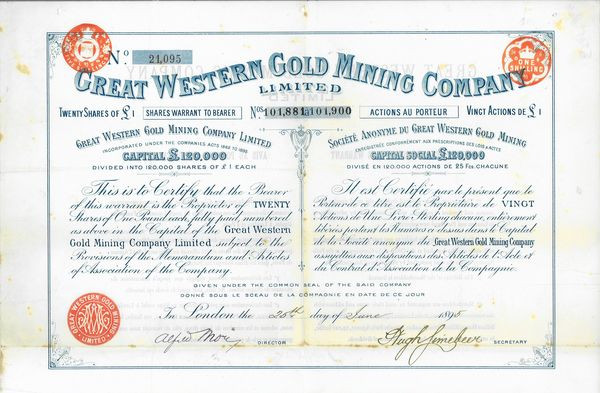 No 24,095
GREAT WESTERN GOLD MINING COMPANY
LIMITED
TWENTY SHARES OF £1
SHARES WARRANT TO BEARER
Nos 101,881 à 101,900
ACTIONS AU PORTEUR
VINGT ACTIONS DE £1
GREAT WESTERN GOLD MINING COMPANY LIMITED
INCORPORATED UNDER THE COMPANIES ACTS 1862 TO 1893
CAPITAL £120,000
DIVIDED INTO 120,000 SHARES OF £1 EACH
This is to Certify that the Bearer
of this warrant is the Proprietor of TWENTY
Shares of One Pound each, fully paid, numbered
as above in the Capital of the Great Western
Gold Mining Company Limited subject to the
Provisions of the Memorandum and Articles
of Association of the Company.
SOCIÉTÉ ANONYME DU GREAT WESTERN GOLD MINING
ENREGISTRÉE CONFORMÉMENT AUX PRESCRIPTIONS DES LOIS & ACTES
CAPITAL SOCIAL £120,000
DIVISÉ EN 120,000 ACTIONS DE 25 Fcs. CHACUNE
Il est Certifié par le présent que le
Porteur de ce titre est le Propriétaire de VINGT
Actions de Une Livre Sterling chacune, entièrement
libérées portant les Numéros ci-dessus dans le Capital
de la Société anonyme du Great Western Gold Mining Company
assujetties aux dispositions des Articles de l'Acte et
du Contrat d'Association de la Compagnie.
GIVEN UNDER THE COMMON SEAL OF THE SAID COMPANY
DONNÉ SOUS LE SCEAU DE LA COMPAGNIE EN DATE DE CE JOUR
In London the 20th day of June 1895
DIRECTOR
SECRETARY
GREAT WESTERN GOLD MINING
LIMITED
ONE
SHILLING